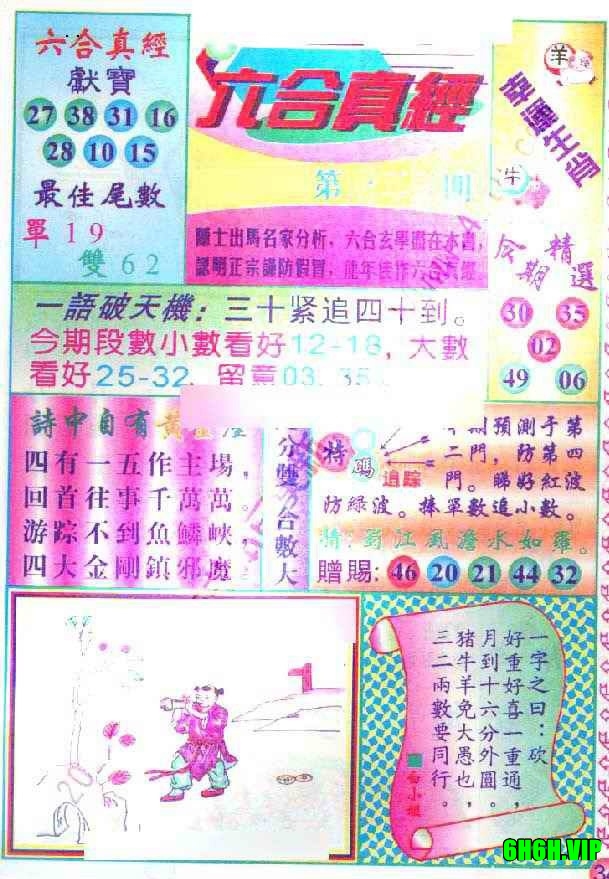 六合真經
獻寶
27 38 31 16
28 10 15
最佳尾數
單19
雙62
六合真經
第 期
隱士出馬名家分析，六合玄學盡在本書，
認明正宗謹防假冒，龍年佳作六合真經
羊
幸運生肖
牛
今期精選
30 35
02
49 06
一語破天機：三十紧追四十到。
今期段數小數看好12-18，大數
看好25-32，留意03、35。
詩中自有黃金屋
四有一五作主場，
回首往事千萬萬。
游踪不到魚鱗峽，
四大金剛鎮邪魔
分雙合數大
特碼
追踪
期預測于第
二門，防第四
門。睇好紅波
防綠波。捧單數追小數。
蜀江風澹水如羅。
贈賜：46 20 21 44 32
一字之曰：砍
好重好喜一重通，
月到十六分外圓，
猪牛羊兔大愚也，
三二兩數要同行。
白小姐
6H6H.VIP
3